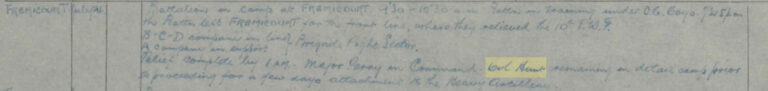 FREMICOURT Battalion in camp at FREMICOURT. 9.30 - 10.30 a.m. in training under O.C. Coys. 7.45 pm
the Battn left FREMICOURT for the front line, where they relieved the 10th R.W.F.
B-C-D companies in line Brigade Right Sector.
A company in support
Relief complete by 1 AM. Major in Command. Col remaining in detail camp
to proceeding for a few days attachment to the Heavy Artillery.